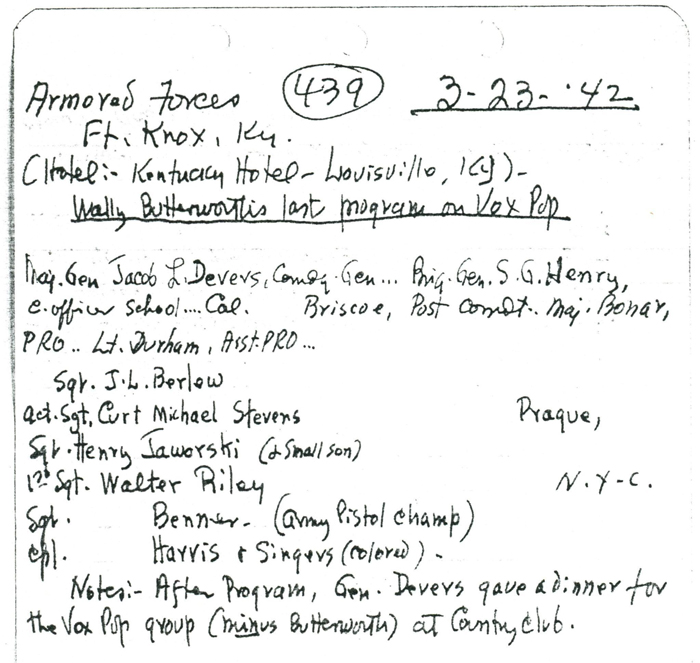 Armored Forces 439 3-23-'42
Ft. Knox, Ky.
(Hotel:- Kentucky Hotel- Louisville, Ky)-
Wally Butterworth's last program on Vox Pop
Maj. Gen Jacob L. Devers, Comdg. Gen... Brig. Gen. S.G. Henry,
c. officer school.... Col. Briscoe, Post Comdt. Maj. Bonar,
PRO.. Lt. Durham, Asst. PRO...
Sgt. J.L. Berlow
act. Sgt. Curt Michael Stevens Prague,
Sgt. Henry Jaworski (& Small son)
1st Sgt. Walter Riley N.Y.C.
Sgt. Benner- (Army Pistol champ)
Cpl. Harris & Singers (colored) -
Notes:- After Program, Gen. Devers gave a dinner for
the Vox Pop group (minus Butterworth) at Country Club.